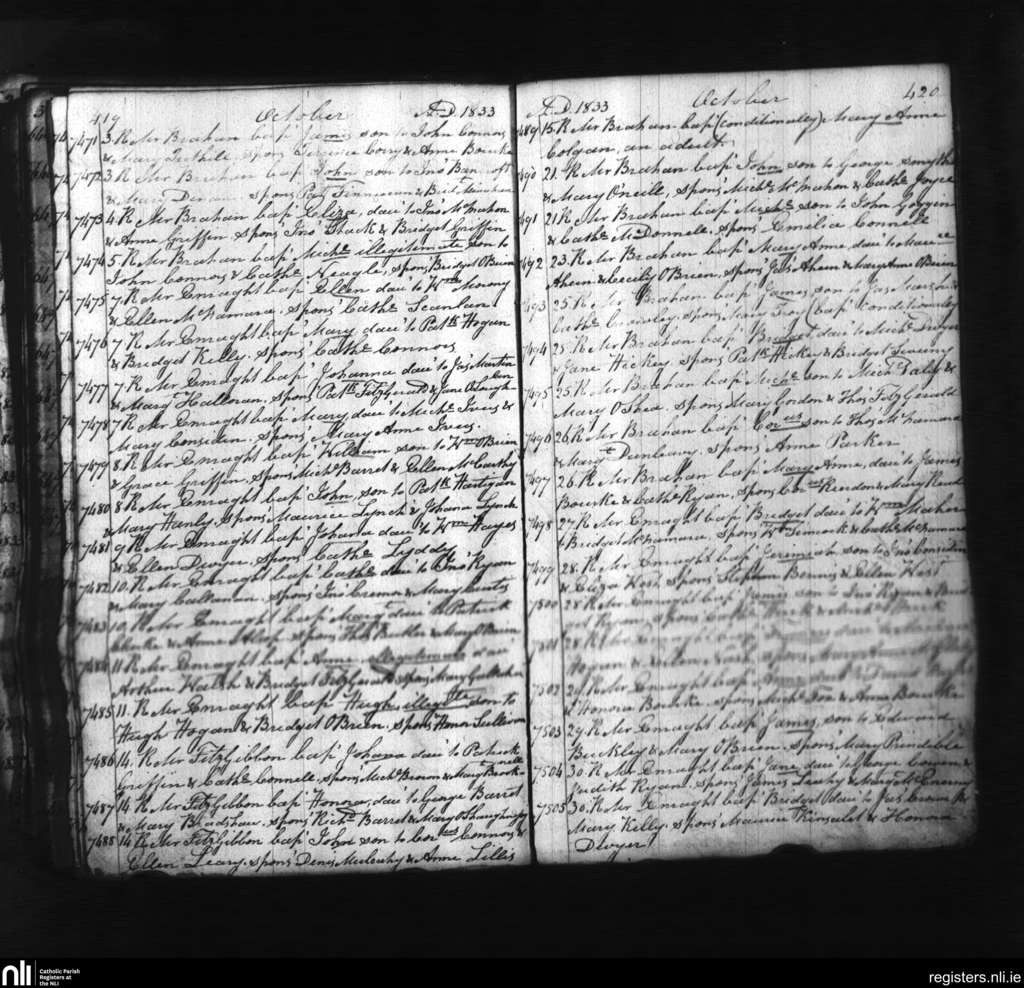 419 October A.D. 1833
7471 3 R Mr Brahan bap' James son to John Connors
& Mary Tuthile, spons' Terence Corry & Anne Bourke
7472 3 R Mr Brahan bap' John son to Jno Bancroft
& Mary Dinan. spons' Patt Finnucan &
7473 4 R Mr Brahan bap' Eliza, dau' to Jno McMahon
& Anne Griffin. Spons' Jno Thack & Bridget Griffin
7474 5 R Mr Brahan bap' Michl illegitimate son to
John Connors & Cathe Neagle, spons' Bridget O'Brien
7475 7 R Mr Enraght bap' Ellen dau' to Wm Morony
& Ellen McNamara. spons' Cathe Scanlan
7476 7 R Mr Enraght bap' Mary dau' to Patt Hogan
& Bridget Kelly. Spons' Cathe Connors
7477 7 R Mr Enraght bap' Johanna dau' to Jas Martin
& Margt Halloran. Spons' Patt FitzGerald & Jane
7478 7 R Mr Enraght bap' Mary dau' to Michl Ivers &
Mary Considen. Spons' Mary Anne Ivers.
7479 8 R Mr Enraght bap' William son to Wm O'Brien
& Grace Griffin. Spons' Michl Barret & Ellen McCarthy
7480 8 R Mr Enraght bap' John, son to Patt Hartigan
& Mary Hanly. spons' Maurice Lynch & Johana Lynch
7481 9 R Mr Enraght bap' Johana dau' to Wm Hayes
& Ellen Dwyer. Spons' Cathe Lyddy
7482 10. R Mr Enraght bap' Cathe dau' to Jno Ryan
& Mary Callanan. spons' Jno Cremon & Mary
7483 10, R Mr Enraght bap' Mary dau' to Patrick
& Anne Alsop. spons' Thos Buckley & Mary O'Brien
7484 11 R Mr Enraght bap' Anne dau'
Arthur Walsh & Bridget FitzGerald Spons' Mary
7485 11. R Mr Enraght bap' Hugh, illegte son to
Hugh Hogan & Bridget O'Brien, spons' Honor Sullivan
7486 14. R Mr FitzGibbon bap' Johana dau' to Patrick
Griffin & Cathe Connell. spons' Michl Brown & Mary
7487 14 R Mr FitzGibbon bap' Honora, dau' to George Barret
& Mary Bradshaw. spons' Richd Barret & Mary O'Shaughnessy
7488 14 R Mr FitzGibbon bap' John son to Cors Connors &
Ellen Leary. spons' Denis Mulcahy & Anne Lillis
A.D. 1833 October 420
489 15. R Mr Brahan bap' (conditionally) Mary Anne
Colgan, an adult.
490 21. R Mr Brahan bap' John son to George Smythe
& Mary O'Neill, Spons' Michl McMahon & Cathe Joyce
491 21 R Mr Brahan bap' Michl son to John
& Cathe McDonnell. spons' Emelia Connell
7492 23. R Mr Brahan bap' Mary Anne, dau' to Maurice
Ahern & Cecily O'Brien, spons' Jas Ahern & Mary Anne O'Brien
7493 25 R Mr Brahan bap' James, son to Jas &
Cathe spons' Mary Troy (bap' conditionally
7494 25 R Mr Brahan bap' Bridget dau' to Michl Dwyer
& Jane Hickey spons Patt Hickey & Bridget
7495 25. R Mr Brahan bap' Michl son to Michl Daly &
Mary O'Shea. spons' Mary Gordon & Thos FitzGerald
7496 26 R Mr Brahan bap' Cors son to Thos McNamara
& Margt Dunleavy. spons' Anne Parker
7497 26. R Mr Brahan bap' Mary Anne, dau' to James
Bourke & Cathe Ryan, spons' Cors Riordon & Mary
7498 27 R Mr Enraght bap' Bridget dau' to Wm Maher
& Bridget McNamara. Spons' Wm & Cathe McNamara
7499 28. R Mr Enraght bap' Jeremiah son to Jno Considin
& Eliza West. spons' Stephen Bennis & Ellen West
7500 28 R Mr Enraght bap' James son to Jno Ryan &
Ryan, spons'
7501 28 R Mr Enraght bap' dau' to
Hogan & Ellen Nash. spons' Mary
7502 29. R Mr Enraght bap'
& Honora Bourke. spons' Michl & Anne Bourke
7503 29. R Mr Enraght bap' James, son to Edward
Buckley & Mary O'Brien. Spons' Mary
7504 30. R Mr Enraght bap' Jane, dau' to George Cowen &
Judith Ryan. Spons' James Leahy & Mary
7505 30. R Mr Enraght bap' Bridget dau' to Jas Crowe &
Mary Kelly. spons' Maurice Kinsalet & Honora
Dwyer
nli Catholic Parish
Registers at
the NLI
registers.nli.ie